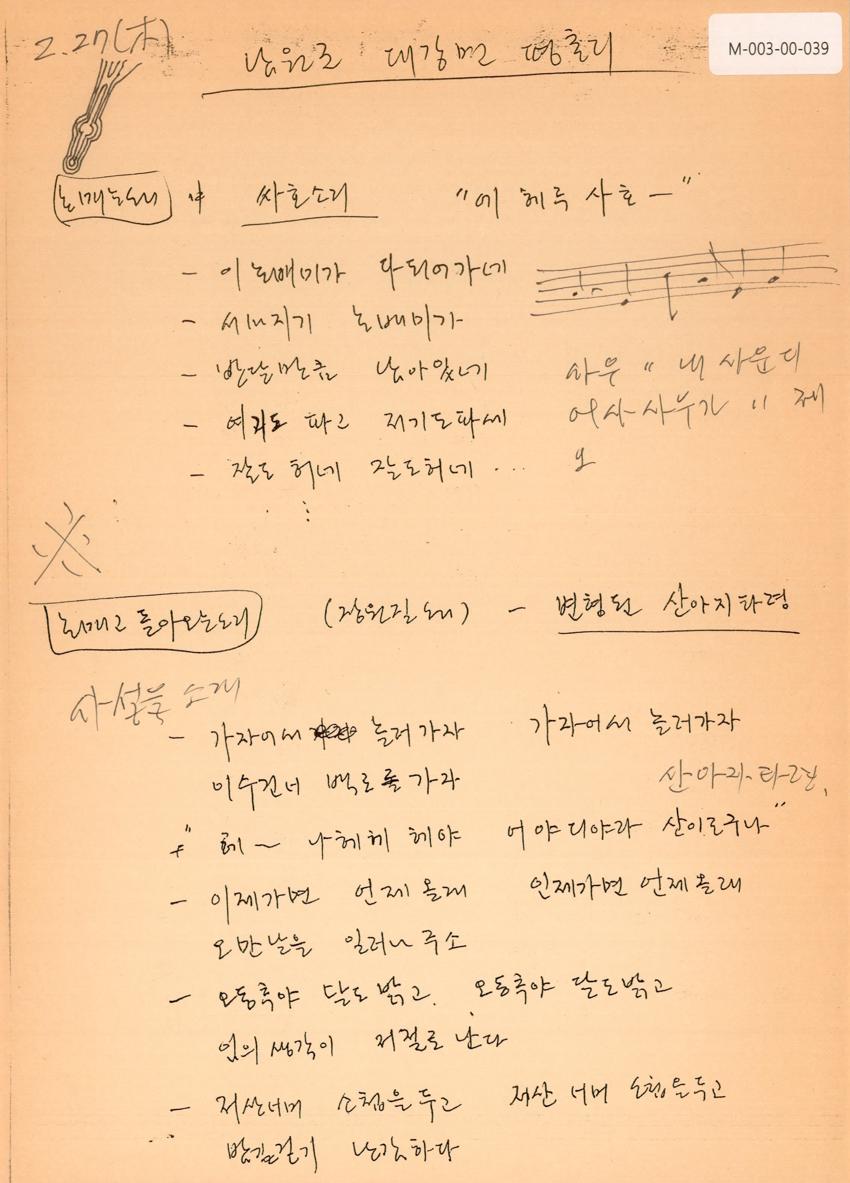 2.27(木)
M-003-00-039
남원군 대강면 평촌리
논매는소리 中 싸호소리 "에 헤루 사호 ー"
- 이 논배미가 다되어가네
- 서마지기 논배미가
- 반달만큼 남아있네
- 여기도 파고 저기도파세
- 잘도 허네 잘도허네 ...
사우 " 내 사운디
어사 사우가 " 제
논매고 돌아오는소리 (장원질소리) - 변형된 산아지타령
사설을 소개
- 가자어서 놀러가자 가자어서 놀러가자
이수건너 백로를 가자
산아지타령
" 헤~ 나헤헤 헤야 어야디야라 산이로구나"
- 이제가면 언제올래 인제가면 언제올래
오만날을 일러나 주소
- 오동추야 달도 밝고. 오동추야 달도밝고
임의 생각이 저절로 난다
- 저산너머 소첩을두고 저산 너머 소첩을두고
밤길걷기 난감하다